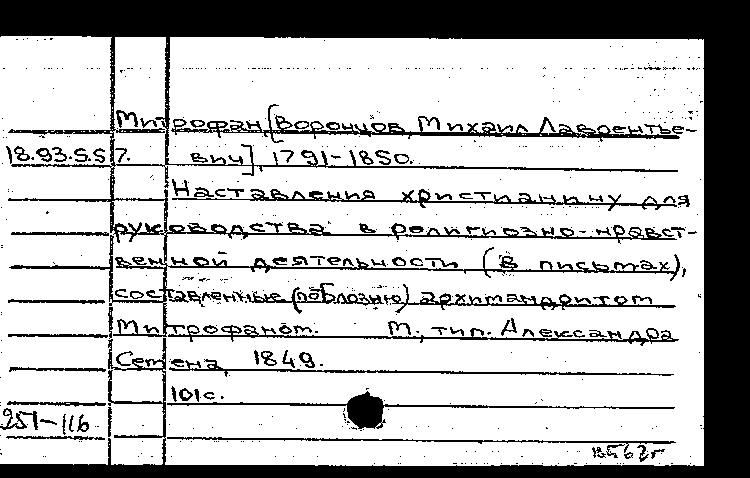 Митрофан [Воронцов, Михаил Лаврентье-
18.93.5.57. вич], 1791-1850.
Наставления христианину для
руководства в религиозно-нравст-
венной деятельности, (в письмах),
составленные архимандритом
Митрофаном. М., тип. Александра
Семена, 1849.
101с.
251-116